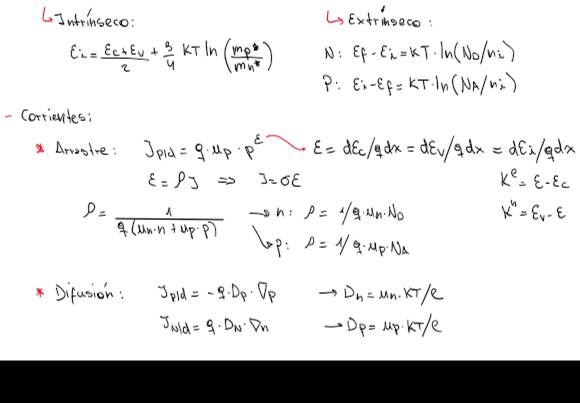 Intrínseco:
Ei = Ec+Ev/2 + 3/4 KT ln (mp*/mn*)
Extrínseco:
N: Ef - Ei = KT · ln(ND/ni)
P: Ei - Ef = KT · ln(NA/ni)
- Corrientes:
* Arrastre: Jp|d = q · μp · p ε → ε = dEc/qdx = dEv/qdx = dEi/qdx
ε = ρJ ⇒ J = σε
K^e = E - Ec
K^h = Ev - E
ρ = 1/q(μn·n + μp·p) → n: ρ = 1/q·μn·ND
↳ p: ρ = 1/q·μp·NA
* Difusión: Jp|d = -q·Dp·∇p → Dn = μn·KT/e
JN|d = q·DN·∇n → Dp = μp·KT/e